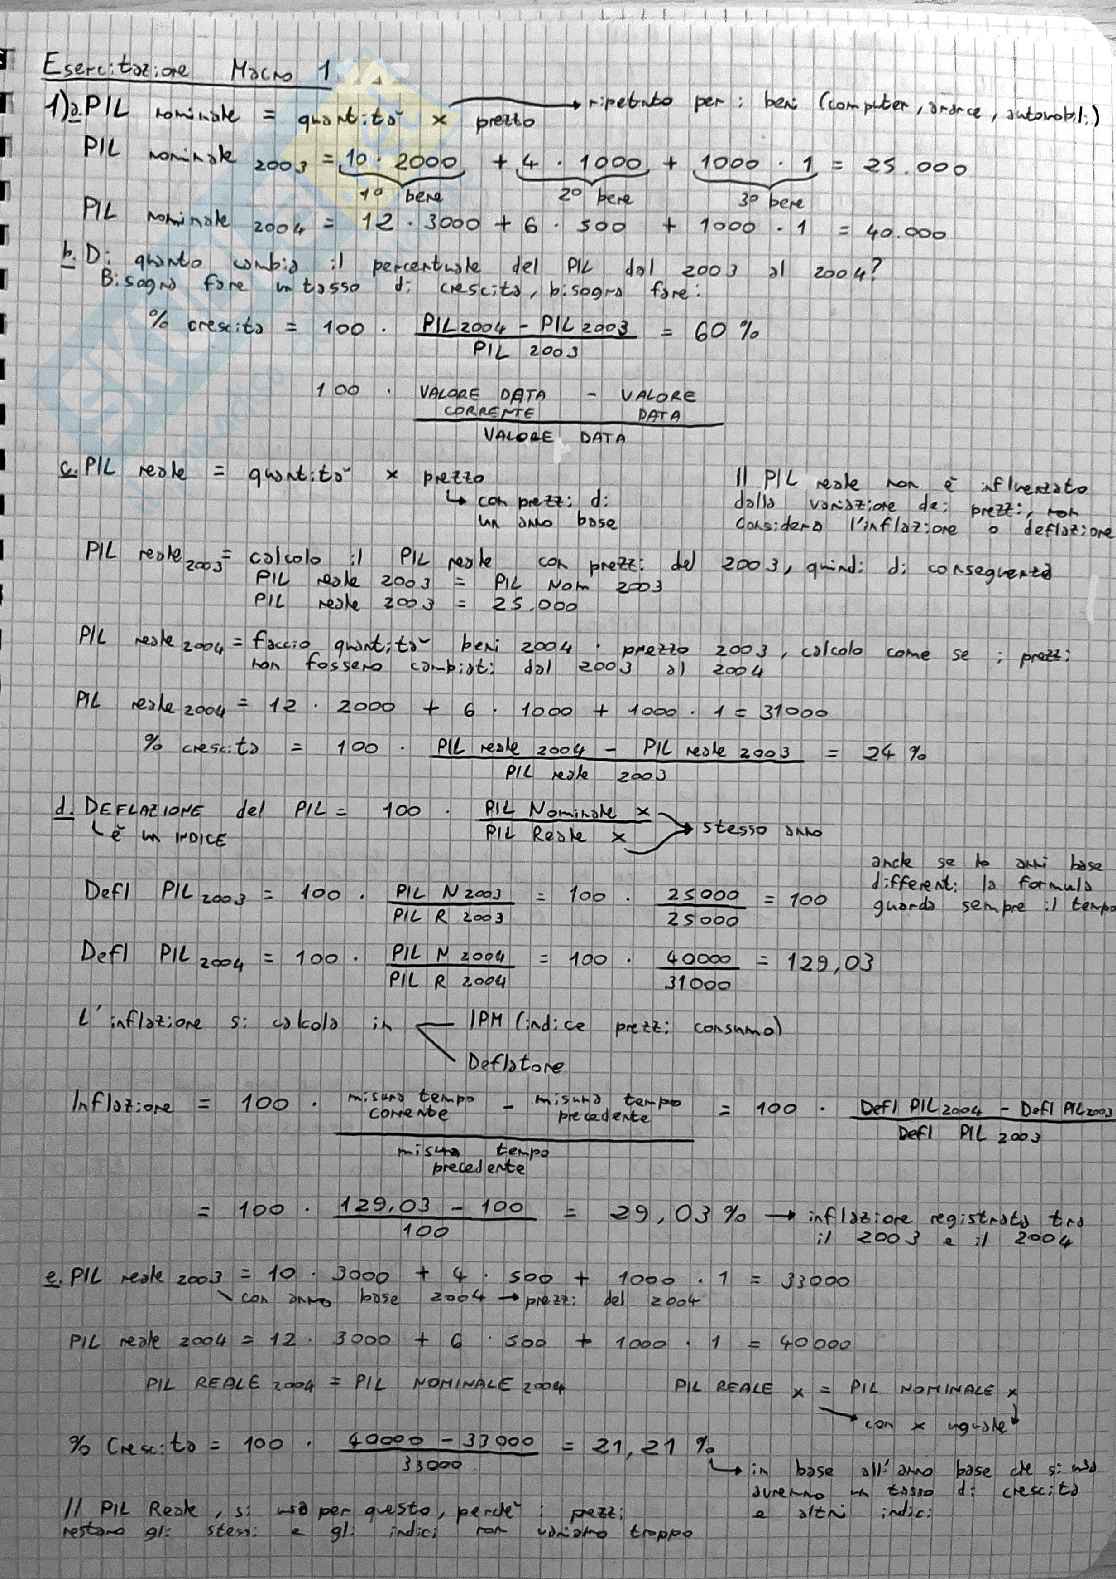 Esercitazione Macro 1
1) a. PIL nominale = quantità × prezzo → ripetuto per i beni (computer, arance, automobili)
PIL nominale 2003 = 10 · 2000 + 4 · 1000 + 1000 · 1 = 25.000
1° bene 2° bene 3° bene
PIL nominale 2004 = 12 · 3000 + 6 · 500 + 1000 · 1 = 40.000
b. D: quanto cambia il percentuale del PIL dal 2003 al 2004?
Bisogna fare un tasso di crescita, bisogna fare:
% crescita = 100 · PIL 2004 - PIL 2003 / PIL 2003 = 60 %
100 · VALORE DATA CORRENTE - VALORE DATA / VALORE DATA
c. PIL reale = quantità × prezzo
↳ con prezzi di
un anno base
Il PIL reale non è influenzato
dalla variazione dei prezzi, non
considera l'inflazione o deflazione
PIL reale 2003 = calcolo il PIL reale con prezzi del 2003, quindi di conseguenza
PIL reale 2003 = PIL Nom 2003
PIL reale 2003 = 25.000
PIL reale 2004 = faccio quantità beni 2004 · prezzo 2003, calcolo come se i prezzi
non fossero cambiati dal 2003 al 2004
PIL reale 2004 = 12 · 2000 + 6 · 1000 + 1000 · 1 = 31000
% crescita = 100 · PIL reale 2004 - PIL reale 2003 / PIL reale 2003 = 24 %
d. DEFLAZIONE del PIL = 100 · PIL Nominale x / PIL Reale x → stesso anno
↳ è un INDICE
anche se ho anni base
differenti la formula
guarda sempre il tempo
Defl PIL 2003 = 100 · PIL N 2003 / PIL R 2003 = 100 · 25000 / 25000 = 100
Defl PIL 2004 = 100 · PIL N 2004 / PIL R 2004 = 100 · 40000 / 31000 = 129,03
L'inflazione si calcola in IPM (indice prezzi consumo)
Deflatore
Inflazione = 100 · misura tempo corrente - misura tempo precedente / misura tempo precedente = 100 · Defl PIL 2004 - Defl PIL 2003 / Defl PIL 2003
= 100 · 129,03 - 100 / 100 = 29,03 % → inflazione registrata tra
il 2003 e il 2004
e. PIL reale 2003 = 10 · 3000 + 4 · 500 + 1000 · 1 = 33000
con anno base 2004 → prezzi del 2004
PIL reale 2004 = 12 · 3000 + 6 · 500 + 1000 · 1 = 40000
PIL REALE 2004 = PIL NOMINALE 2004 PIL REALE x = PIL NOMINALE x
→ con x uguale
% Crescita = 100 · 40000 - 33000 / 33000 = 21,21 %
↳ in base all'anno base che si usa
avremo un tasso di crescita
e altri indici
Il PIL Reale, si usa per questo, perchè i prezzi
restano gli stessi e gli indici non variano troppo